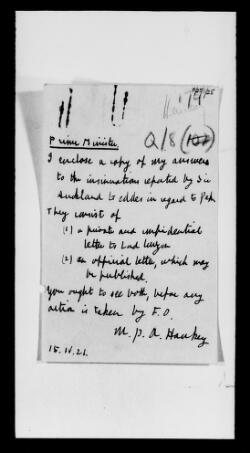 Q/8 (102)
Prime Minister
I enclose a copy of my answers
to the insinuation repeated by Sir
Auckland Geddes in regard to
They consist of
(1) a private and confidential
letter to Lord Curzon
(2) an official letter, which may
be published.
You ought to see both, before any
action is taken by F.O.
M. P. A. Hankey
15.IV.21.